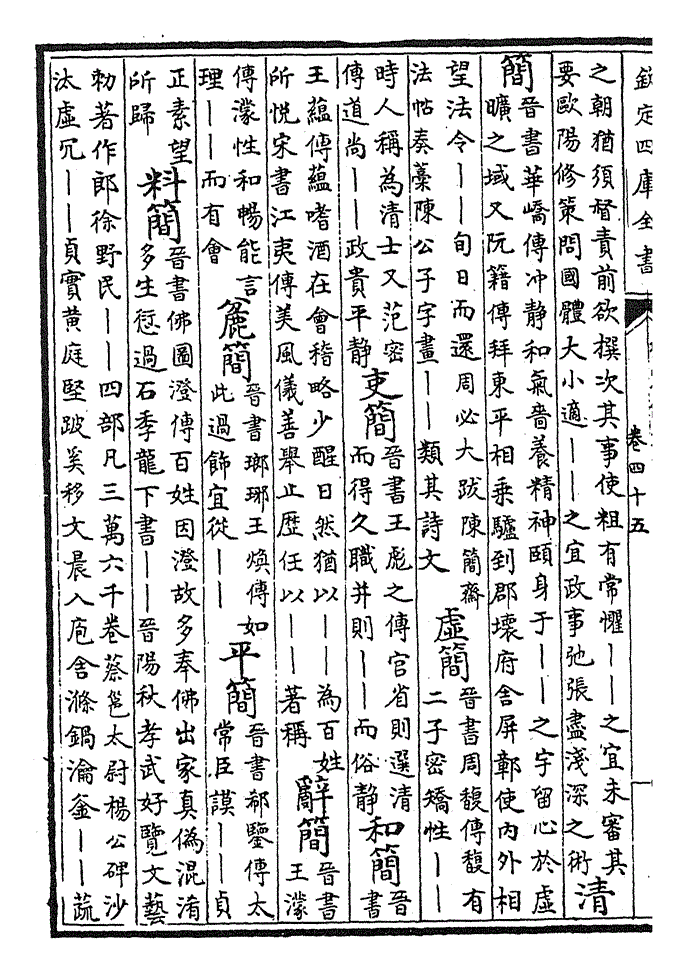 欽定四庫全書
卷四十五
之朝猶須督責前欲撰次其事使粗有常懼——之宜未審其
要歐陽修策問國體大小適——之宜政事弛張盡淺深之術
清
簡
晉書華嶠傳冲静和氣嗇養精神頤身于——之宇留心於虛
曠之域又阮籍傳拜東平相乘驢到郡壞府舍屏鄣使內外相
望法令——旬日而還周必大跋陳簡齋
法帖奏藁陳公子字畫——類其詩文
虛簡
晉書周馥傳馥有
二子密矯性——
時人稱為清士又范密
傳道尚——政貴平静
吏簡
晉書王彪之傳官省則選清
而得久職并則——而俗静
和簡
晉
書
王蘊傳蘊嗜酒在會稽略少醒日然猶以——為百姓
所悅宋書江夷傳美風儀善舉止歷任以——著稱
辭簡
晉書
王濛
傳濛性和暢能言
理——而有會
麄簡
晉書瑯琊王煥傳如
此過飾宜從——
平簡
晉書郗鑒傳太
常臣謨——貞
正素望
所歸
料簡
晉書佛圖澄傳百姓因澄故多奉佛出家真偽混淆
多生愆過石季龍下書——晉陽秋孝武好覽文藝
勅著作郎徐野民——四部凡三萬六千卷蔡邕太尉楊公碑沙
汰虛冗——貞實黄庭堅跛奚移文晨入庖舍滌鍋瀹釜——蔬